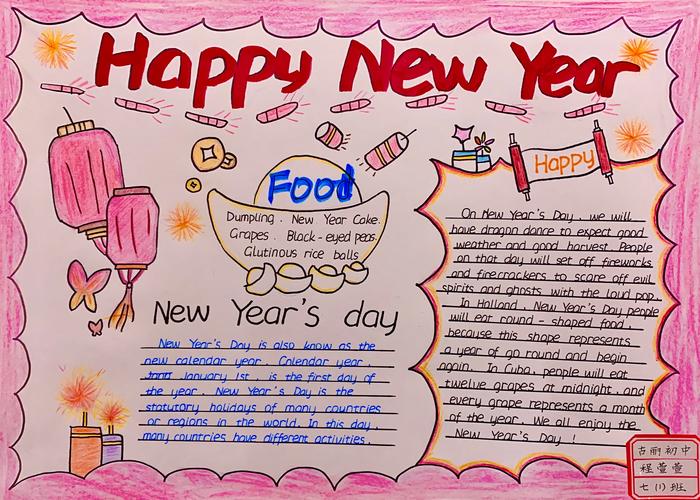 Happy New Year
Food
Dumpling. New Year Cake.
Grapes. Black-eyed peas.
Glutinous rice balls
New Year's day
New Year's Day is also know as the
new calendar year. Calendar year
January 1st, is the first day of
the year. New Year's Day is the
statutory holidays of many countries
or regions in the world. In this day,
many countries have different activities.
Happy
On New Year's Day, we will
have dragon dance to expect good
weather and good harvest. People
on that day will set off fireworks
and firecrackers to scare off evil
spirits and ghosts with the loud pop.
In Holland, New Year's Day people
will eat round-shaped food,
because this shape represents
a year of go round and begin
again. In Cuba, people will eat
twelve grapes at midnight, and
every grape represents a month
of the year. We all enjoy the
New Year's Day!
古丽初中
程萱萱
七(1)班